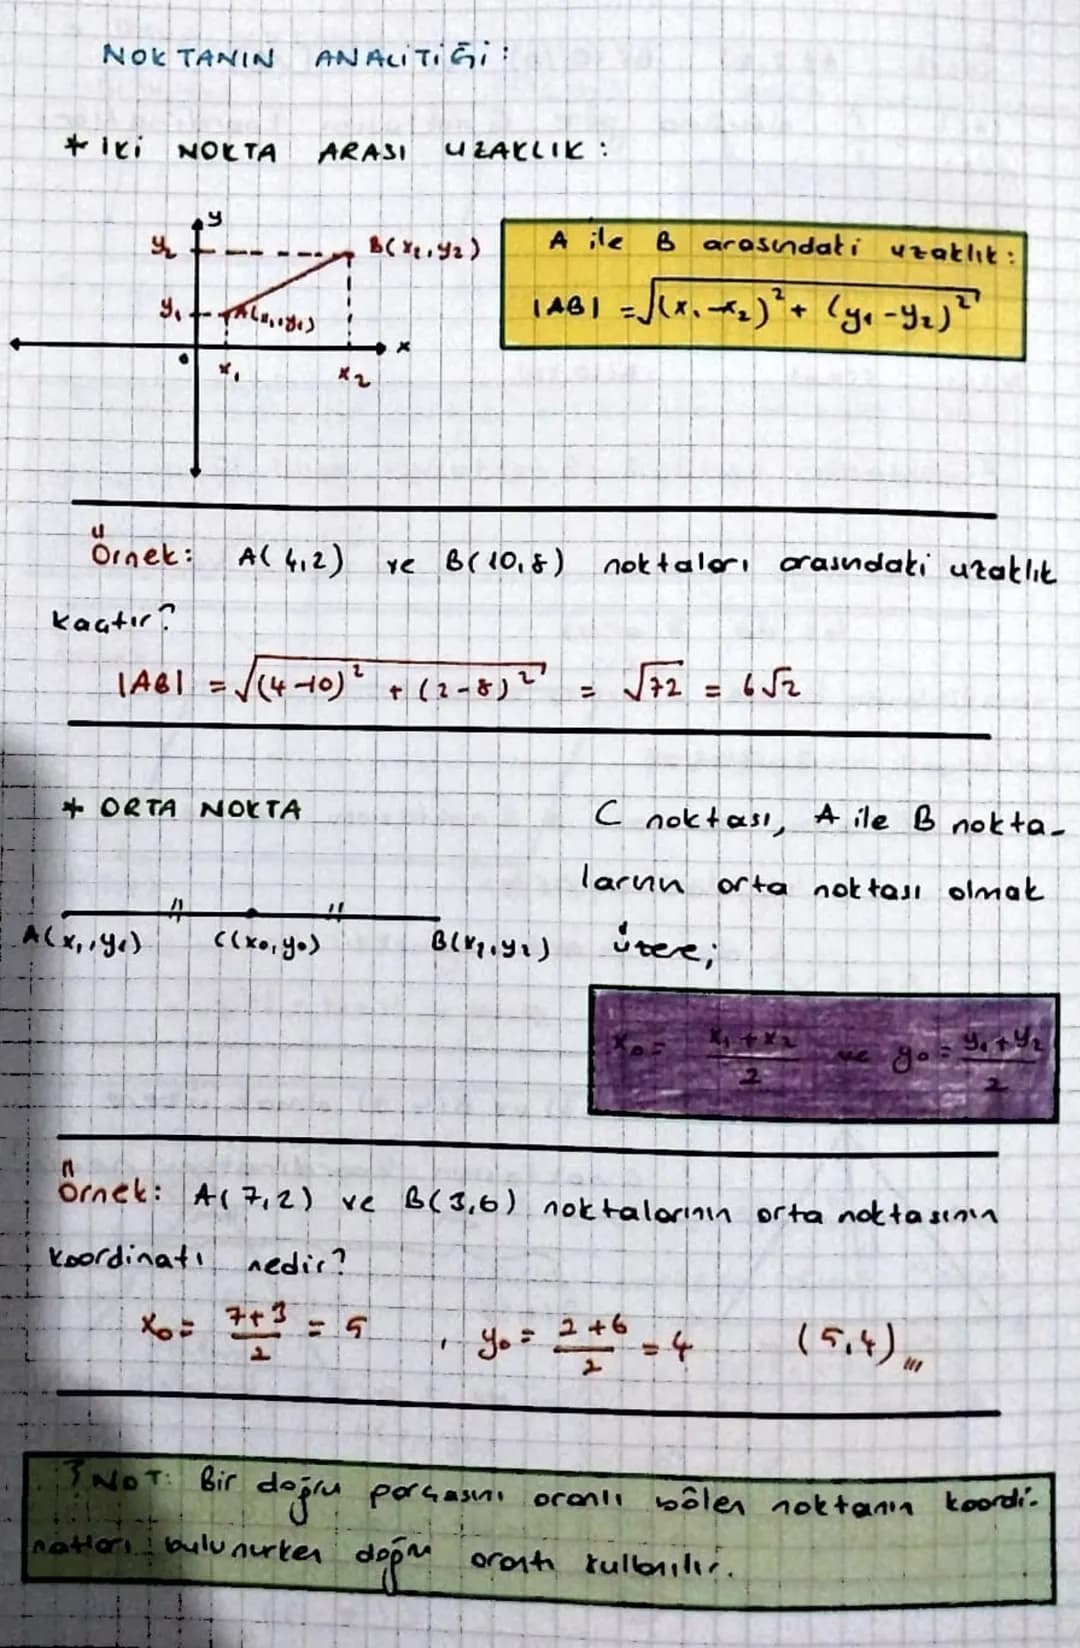 NOKTANIN ANALİTİĞİ:
* İKİ NOKTA ARASI UZAKLIK:
y
y₂ B(x₂,y₂)
y₁ A(x₁,y₁)
x
x₁ x₂
A ile B arasındaki uzaklık:
|AB| = √(x₁-x₂)² + (y₁-y₂)²
Örnek: A(4,2) ve B(10,8) noktaları arasındaki uzaklık
kaçtır?
|AB| = √(4-10)² + (2-8)² = √72 = 6√2
* ORTA NOKTA
A(x₁,y₁) C(x₀,y₀) B(x₂,y₂)
C noktası, A ile B nokta-
larının orta noktası olmak
üzere;
x₀ = x₁+x₂/2 ve y₀ = y₁+y₂/2
Örnek: A(7,2) ve B(3,6) noktalarının orta noktasının
koordinatı nedir?
x₀ = 7+3/2 = 5 , y₀ = 2+6/2 = 4 (5,4)
NOT: Bir doğru parçasını oranlı bölen noktanın koordi-
natları bulunurken doğru orantı kullanılır.